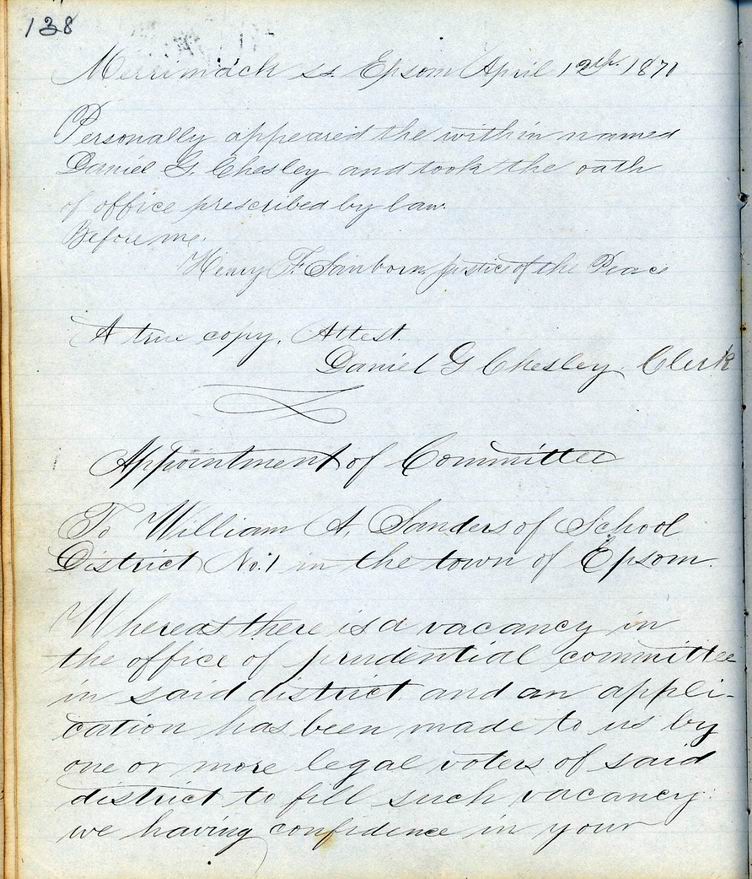 138
Merrimack ss. Epsom April 12th. 1871
Personally appeared the within named
Daniel G. Chesley and took the oath
of office prescribed by law.
Before me.
Henry F. Sanborn, justice of the Peace
A true copy, Attest.
Daniel G Chesley Clerk
Appointment of Committee
To William A. Sanders of School
District No. 1 in the town of Epsom.
Whereas there is a vacancy in
the office of prudential committee
in said district and an appli-
cation has been made to us by
one or more legal voters of said
district to fill such vacancy:
we having confidence in your